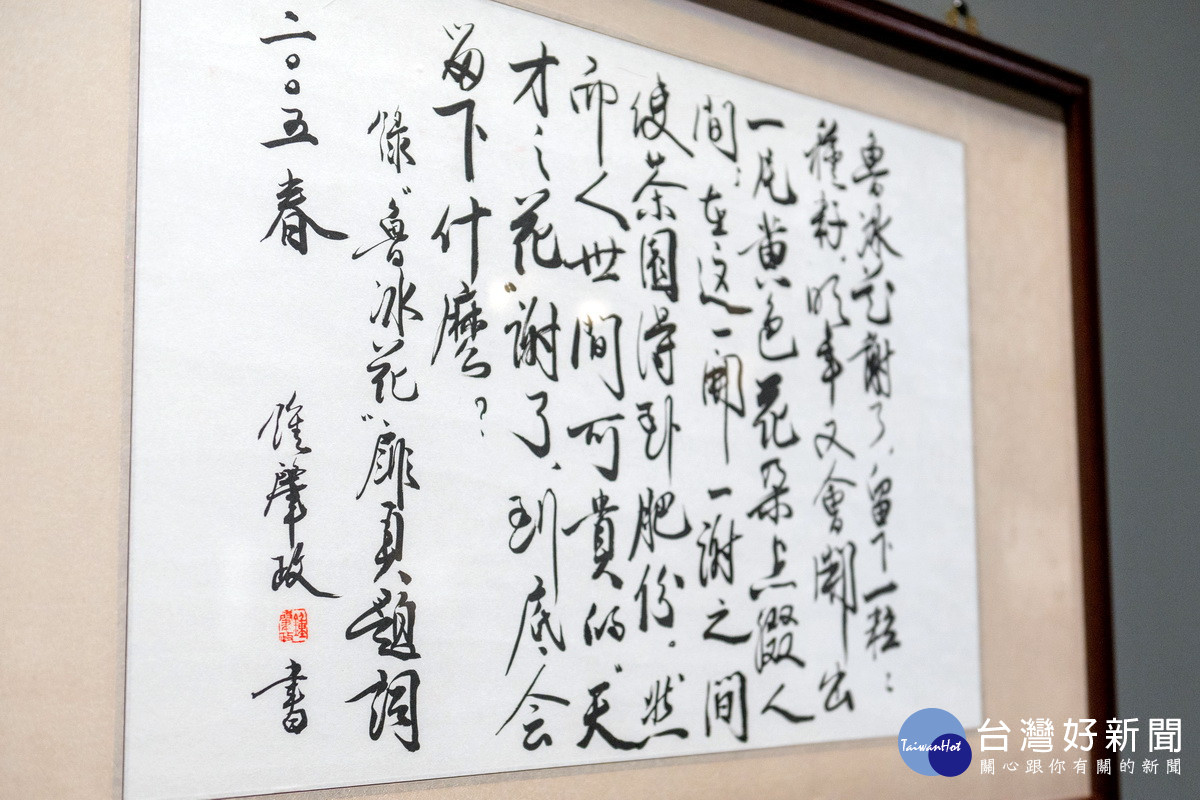 魯冰花謝了，留下一粒〻
種籽，明年又會開出
一片黃色花朵点綴人
間，在這一開一謝之間
使茶園得到肥份，然
而人世間可貴的“天
才之花”謝了，到底会
留下什麼？
錄“魯冰花”扉頁題詞
二○○五春 鍾肇政 書
TaiwanHot
台灣好新聞
關心跟你有關的新聞